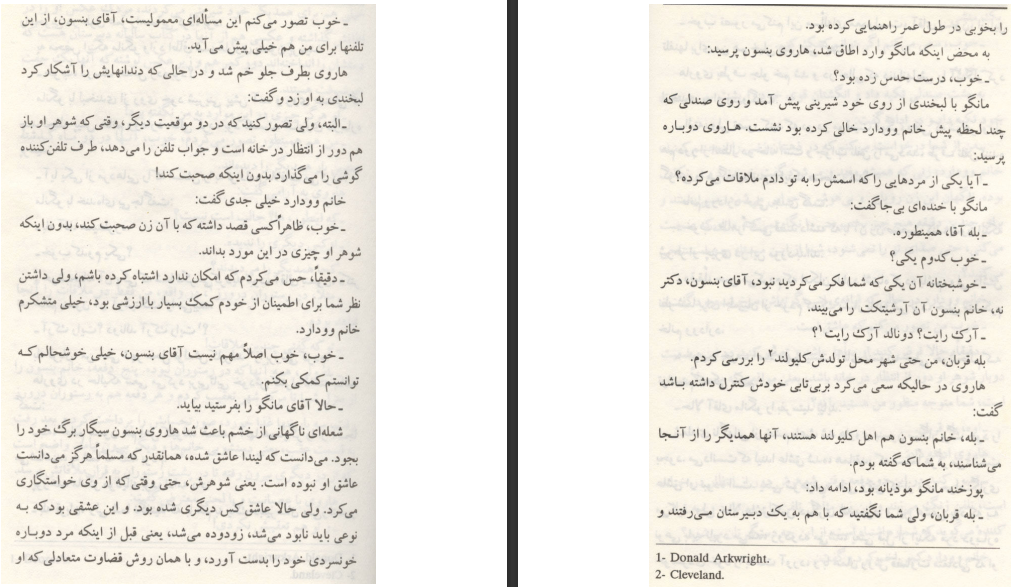 ـ خوب تصور می‌کنم این مسأله‌ای معمولیست، آقای بنسون، از این
تلفنها برای من هم خیلی پیش می‌آید.
هاروی بطرف جلو خم شد و در حالی که دندانهایش را آشکار کرد
لبخندی به او زد و گفت:
ـ البته، ولی تصور کنید که در دو موقعیت دیگر، وقتی که شوهر او باز
هم دور از انتظار در خانه است و جواب تلفن را می‌دهد، طرف تلفن‌کننده
گوشی را می‌گذارد بدون اینکه صحبت کند!
خانم وودارد خیلی جدی گفت:
ـ خوب، ظاهراً کسی قصد داشته که با آن زن صحبت کند، بدون اینکه
شوهر او چیزی در این مورد بداند.
ـ دقیقاً، حس می‌کردم که امکان ندارد اشتباه کرده باشم، ولی داشتن
نظر شما برای اطمینان از خودم کمک بسیار با ارزشی بود، خیلی متشکرم
خانم وودارد.
ـ خوب، خوب اصلاً مهم نیست آقای بنسون، خیلی خوشحالم که
توانستم کمکی بکنم.
ـ حالا آقای مانگو را بفرستید بیاید.
شعله‌ای ناگهانی از خشم باعث شد هاروی بنسون سیگار برگ خود را
بجود. می‌دانست که لیندا عاشق شده، همانقدر که مسلماً هرگز می‌دانست
عاشق او نبوده است. یعنی شوهرش، حتی وقتی که از وی خواستگاری
می‌کرد. ولی حالا عاشق کس دیگری شده بود. و این عشقی بود که به
نوعی باید نابود می‌شد، زدوده می‌شد، یعنی قبل از اینکه مرد دوباره
خونسردی خود را بدست آورد، و با همان روش قضاوت متعادلی که او
را بخوبی در طول عمر راهنمایی کرده بود.
به محض اینکه مانگو وارد اطاق شد، هاروی بنسون پرسید:
ـ خوب، درست حدس زده بود؟
مانگو با لبخندی از روی خود شیرینی پیش آمد و روی صندلی که
چند لحظه پیش خانم وودارد خالی کرده بود نشست. هاروی دوباره
پرسید:
ـ آیا یکی از مردهایی را که اسمش را به تو دادم ملاقات می‌کرده؟
مانگو با خنده‌ای بی‌جا گفت:
ـ بله آقا، همینطوره.
ـ خوب کدوم یکی؟
ـ خوشبختانه آن یکی که شما فکر می‌کردید نبود، آقای بنسون، دکتر
نه، خانم بنسون آن آرشیتکت را می‌بیند.
ـ آرک رایت؟ دونالد آرک رایت۱؟
بله قربان، من حتی شهر محل تولدش کلیولند۲ را بررسی کردم.
هاروی در حالیکه سعی می‌کرد بر بی‌تابی خودش کنترل داشته باشد
گفت:
ـ بله، خانم بنسون هم اهل کلیولند هستند، آنها همدیگر را از آنجا
می‌شناسند، به شما که گفته بودم.
پوزخند مانگو موذیانه بود، ادامه داد:
ـ بله قربان، ولی شما نگفتید که با هم به یک دبیرستان می‌رفتند و
1- Donald Arkwright.
2- Cleveland.